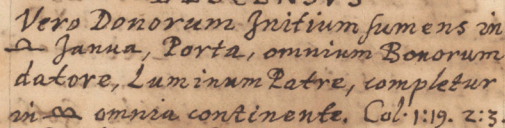 Vero Donorum Initium sumens in
♎ Janua, Porta, omnium Bonorum
datore, Luminum Patre, completur
in omnia continente. Col. 1:19. 2:3.